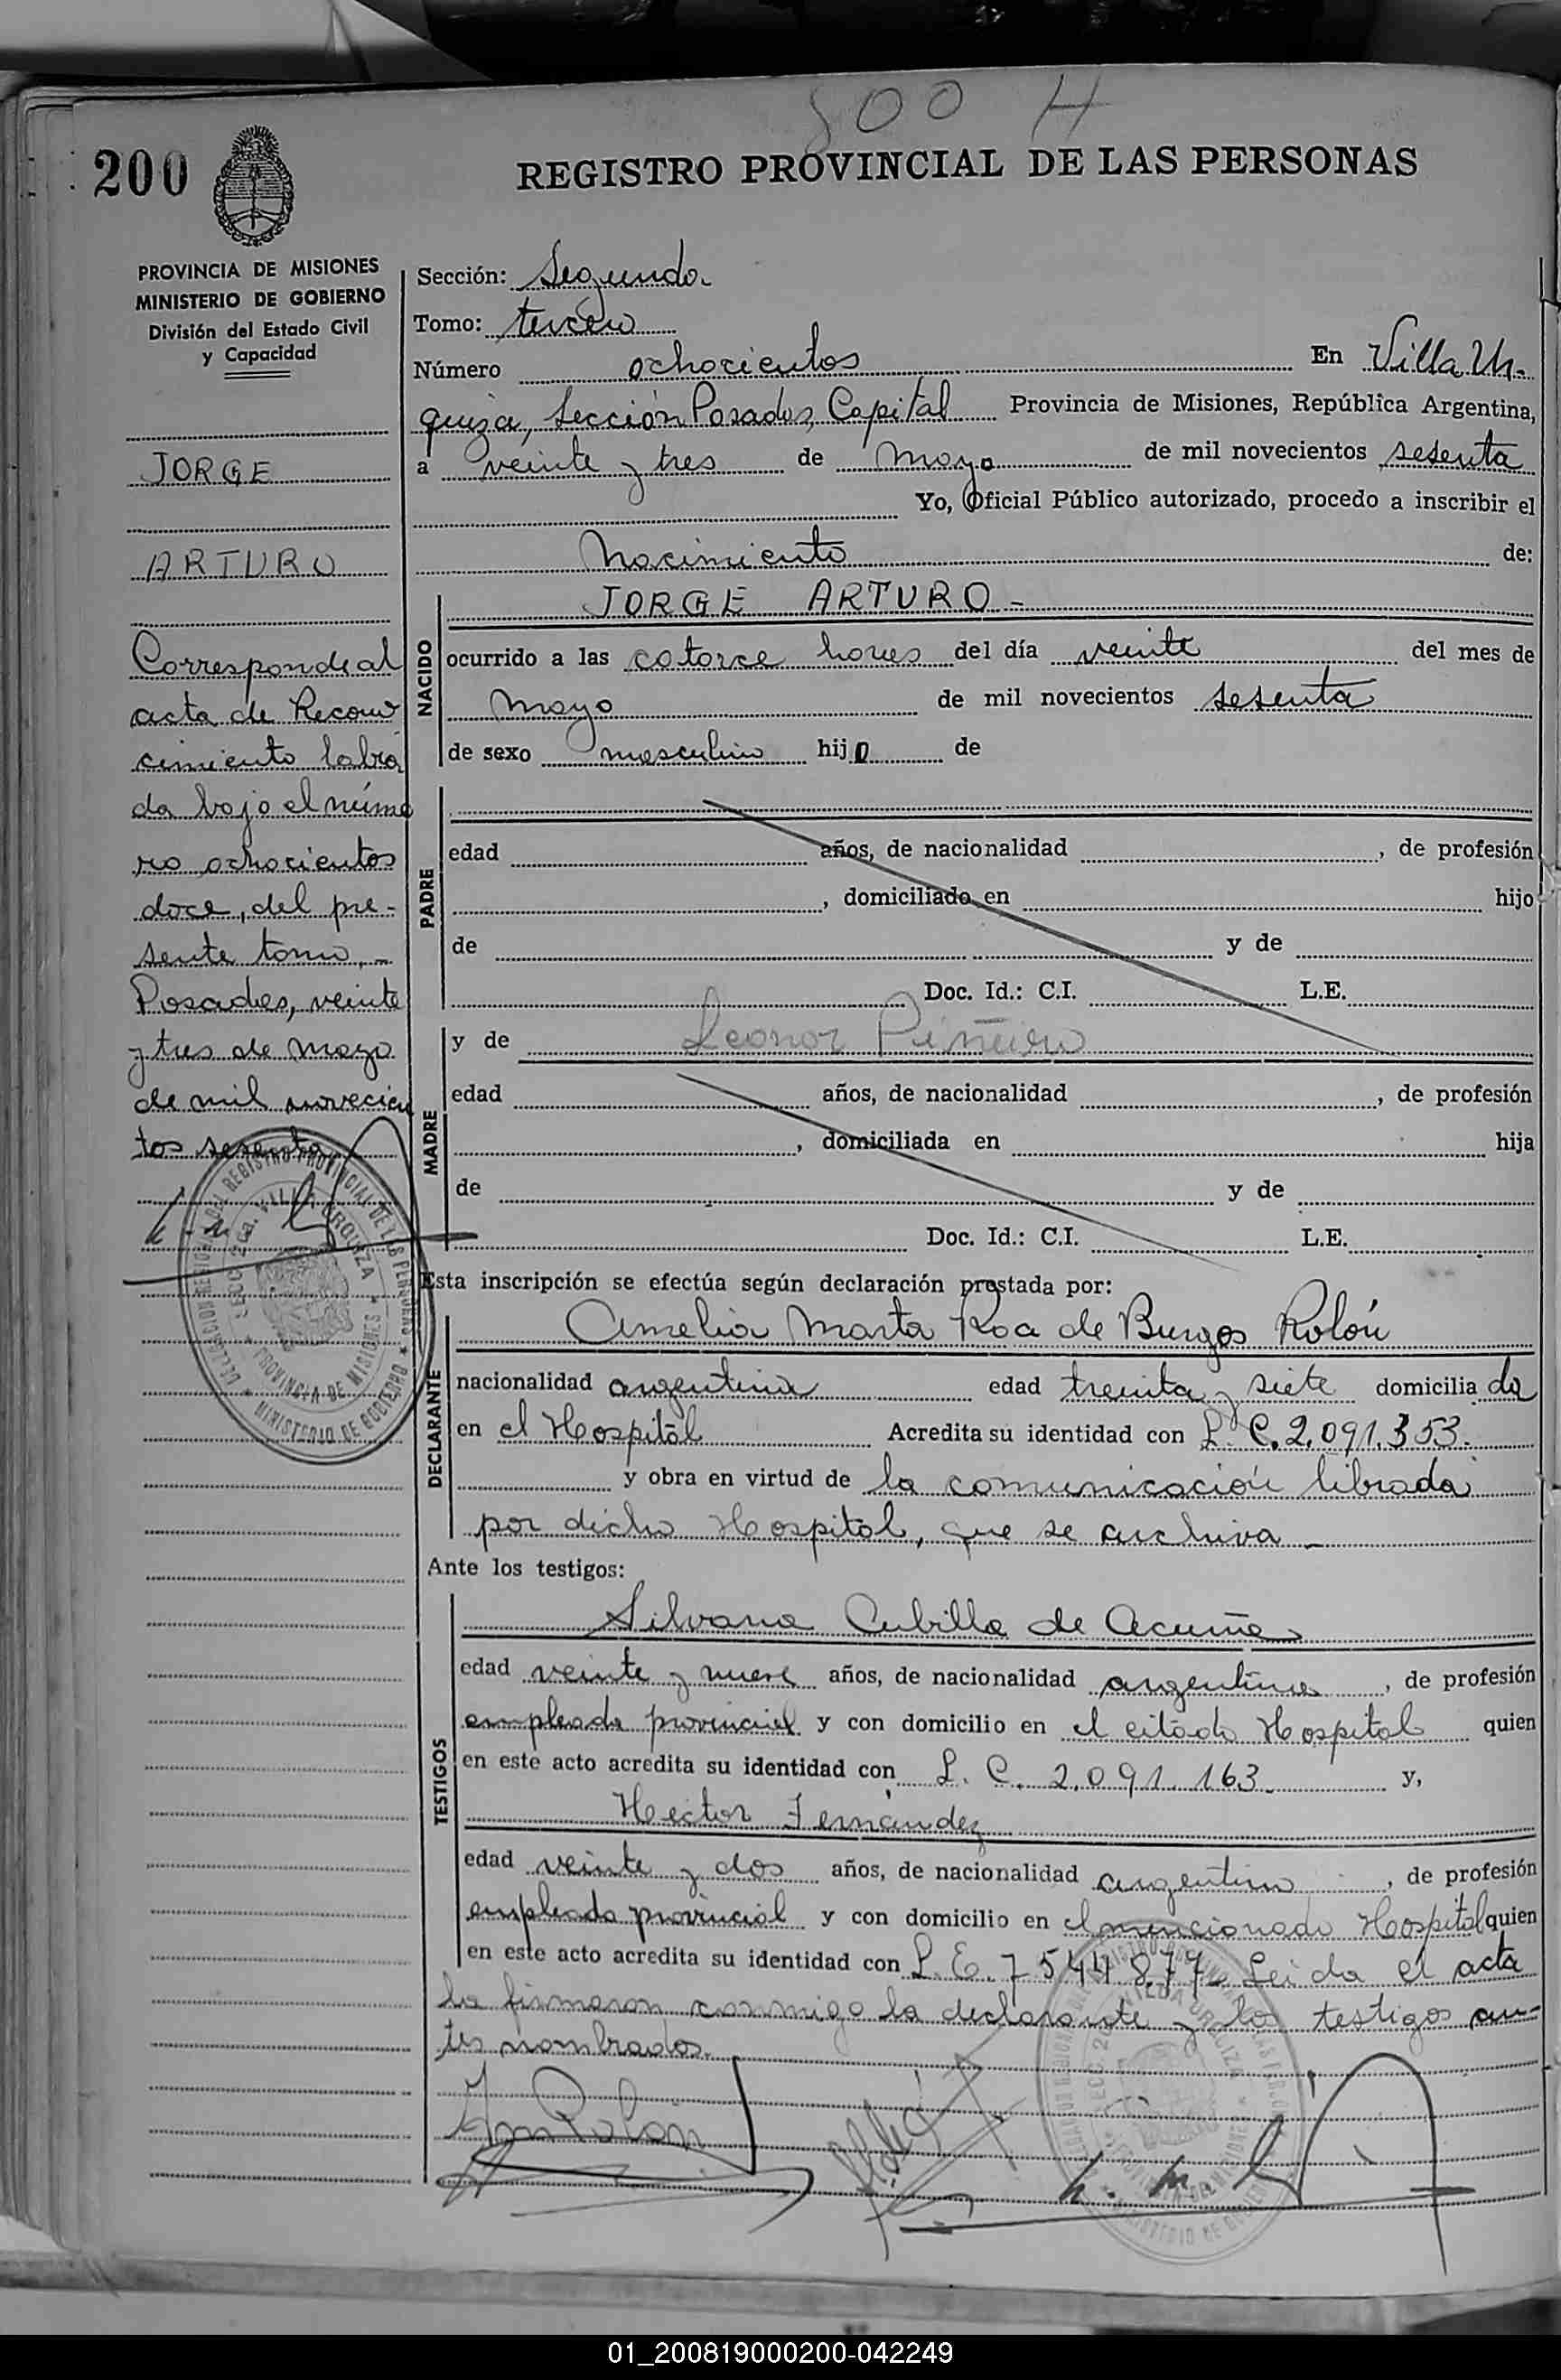 800 H
200
REGISTRO PROVINCIAL DE LAS PERSONAS
PROVINCIA DE MISIONES
MINISTERIO DE GOBIERNO
División del Estado Civil
y Capacidad
JORGE
ARTURO
Corresponde al
acta de Recono
cimiento labra
da bajo el núme
ro ochocientos
doce, del pre-
sente tomo.-
Posadas, veinte
y tres de mayo
de mil novecien
tos sesenta
Sección: Segunda
Tomo: tercero
Número ochocientos En Villa Ur-
quiza, Sección Posadas, Capital Provincia de Misiones, República Argentina,
a veinte y tres de mayo de mil novecientos sesenta
Yo, Oficial Público autorizado, procedo a inscribir el
Nacimiento de:
NACIDO
JORGE ARTURO-
ocurrido a las catorce horas del día veinte del mes de
mayo de mil novecientos sesenta
de sexo masculino hijo de
PADRE
edad años, de nacionalidad , de profesión
, domiciliado en hijo
de y de
Doc. Id.: C.I. L.E.
MADRE
y de Leonor Piñeiro
edad años, de nacionalidad , de profesión
, domiciliada en hija
de y de
Doc. Id.: C.I. L.E.
Esta inscripción se efectúa según declaración prestada por:
DECLARANTE
Amelia Marta Roa de Burgos Rolón
nacionalidad argentina edad treinta y siete domiciliada
en el Hospital Acredita su identidad con L. C. 2.091.353.
y obra en virtud de la comunicación librada
por dicho Hospital, que se archiva-
Ante los testigos:
TESTIGOS
Silvana Cubilla de Acuña
edad veinte y nueve años, de nacionalidad argentina, de profesión
empleada provincial y con domicilio en el citado Hospital quien
en este acto acredita su identidad con L. C. 2.091.163- y,
Hector Fernández
edad veinte y dos años, de nacionalidad argentino, de profesión
empleado provincial y con domicilio en el mencionado Hospital quien
en este acto acredita su identidad con L.E. 7544877- Leida el acta
la firmaron conmigo la declarante y los testigos an-
tes nombrados.
DELEGACION REGIONAL DEL REGISTRO PROVINCIAL DE LAS PERSONAS
SECC. 2da. VILLA URQUIZA
PROVINCIA DE MISIONES
MINISTERIO DE GOBIERNO
01_200819000200-042249